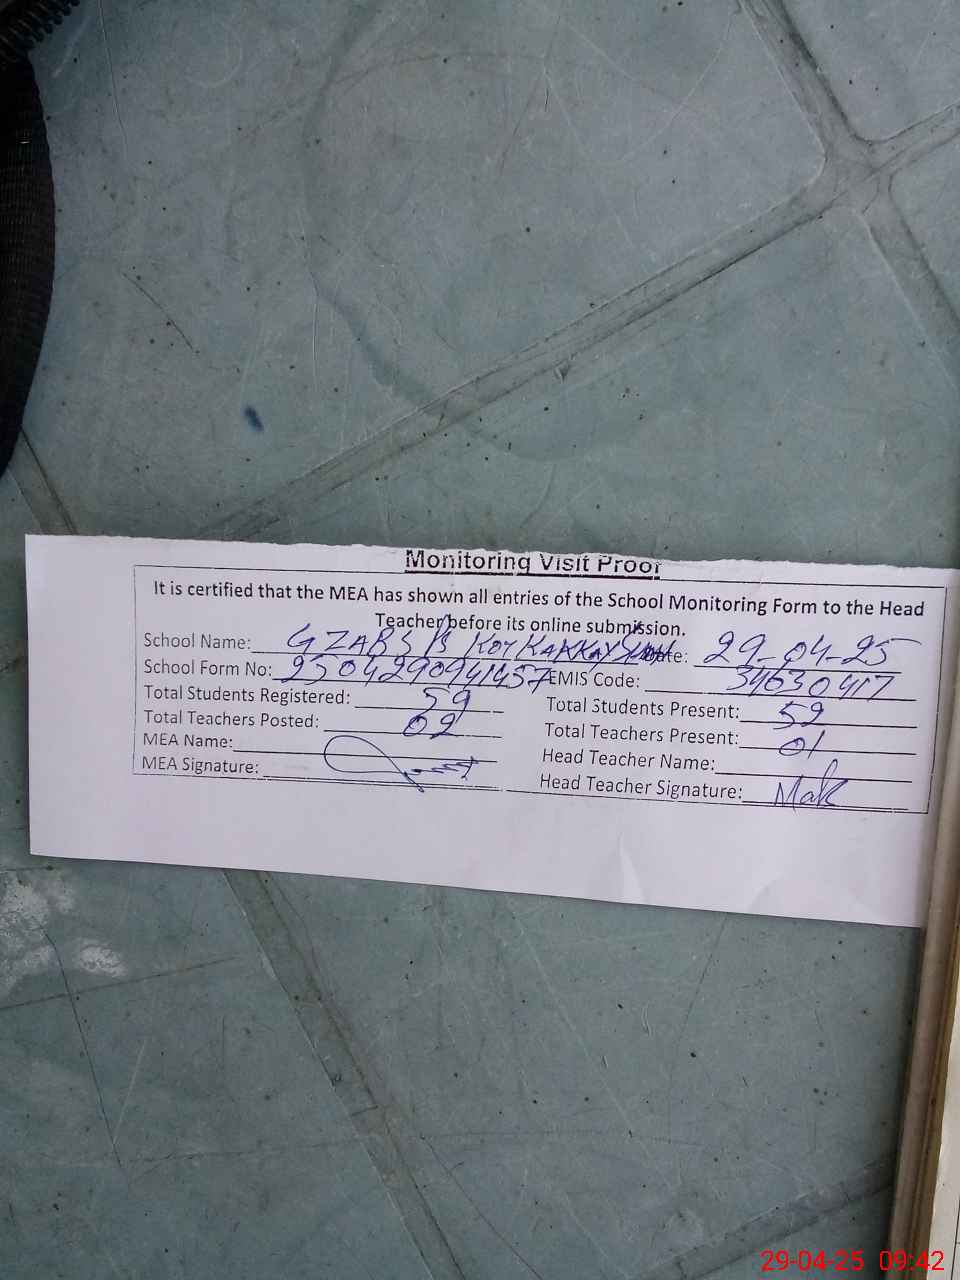 Monitoring Visit Proof
It is certified that the MEA has shown all entries of the School Monitoring Form to the Head
Teacher before its online submission.
School Name: GZABS Ps KOT KAKKAY Date: 29-04-25
School Form No: 2504290941457 EMIS Code: 34630417
Total Students Registered: 59 Total Students Present: 52
Total Teachers Posted: 02 Total Teachers Present: 01
MEA Name: Head Teacher Name:
MEA Signature: Head Teacher Signature: Mak
29-04-25 09:42